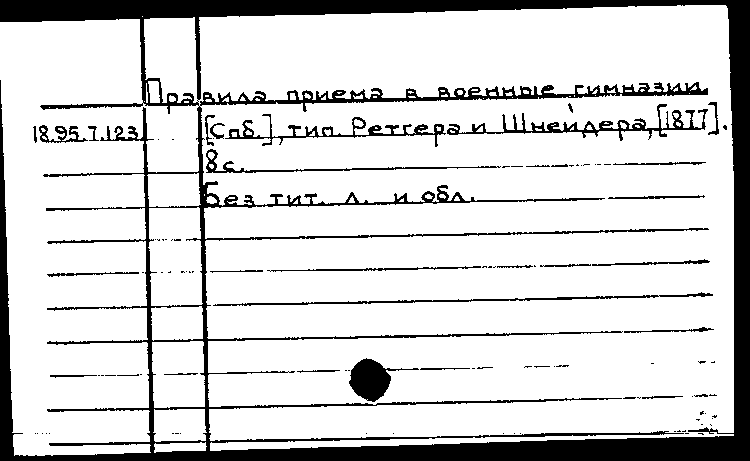 Правила приема в военные гимназии.
18.95.7.123 [Спб.], тип. Ретгера и Шнейдера, [1877].
8 с.
Без тит. л. и обл.